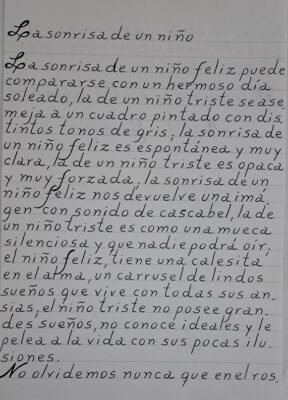 La sonrisa de un niño
La sonrisa de un niño feliz puede
compararse con un hermoso día
soleado, la de un niño triste se ase
meja a un cuadro pintado con dis
tintos tonos de gris, la sonrisa de
un niño feliz es espontánea y muy
clara, la de un niño triste es opaca
y muy forzada, la sonrisa de un
niño feliz nos devuelve una imá
gen con sonido de cascabel, la de
un niño triste es como una mueca
silenciosa y que nadie podrá oir,
el niño feliz, tiene una calesita
en el alma, un carrusel de lindos
sueños que vive con todas sus an-
sias, el niño triste no posee gran-
des sueños, no conoce ideales y le
pelea a la vida con sus pocas ilu-
siones.
No olvidemos nunca que en el ros